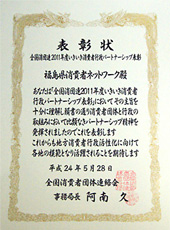 表彰状
全国消団連2011年度いきいき消費者行政パートナーシップ表彰
福島県消費者ネットワーク殿
あなたは「全国消団連2011年度いきいき消費者
行政パートナーシップ表彰」においてその主旨を
十分に理解し顕著の通り消費者団体と行政の
取組みにおいて比類なきパートナーシップ精神を
発揮されましたのでこれを表彰します
これからも地方消費者行政活性化に向けて
各地の模範となり活躍されることを期待します
平成24年5月28日
全国消費者団体連絡会
事務局長 阿南 久